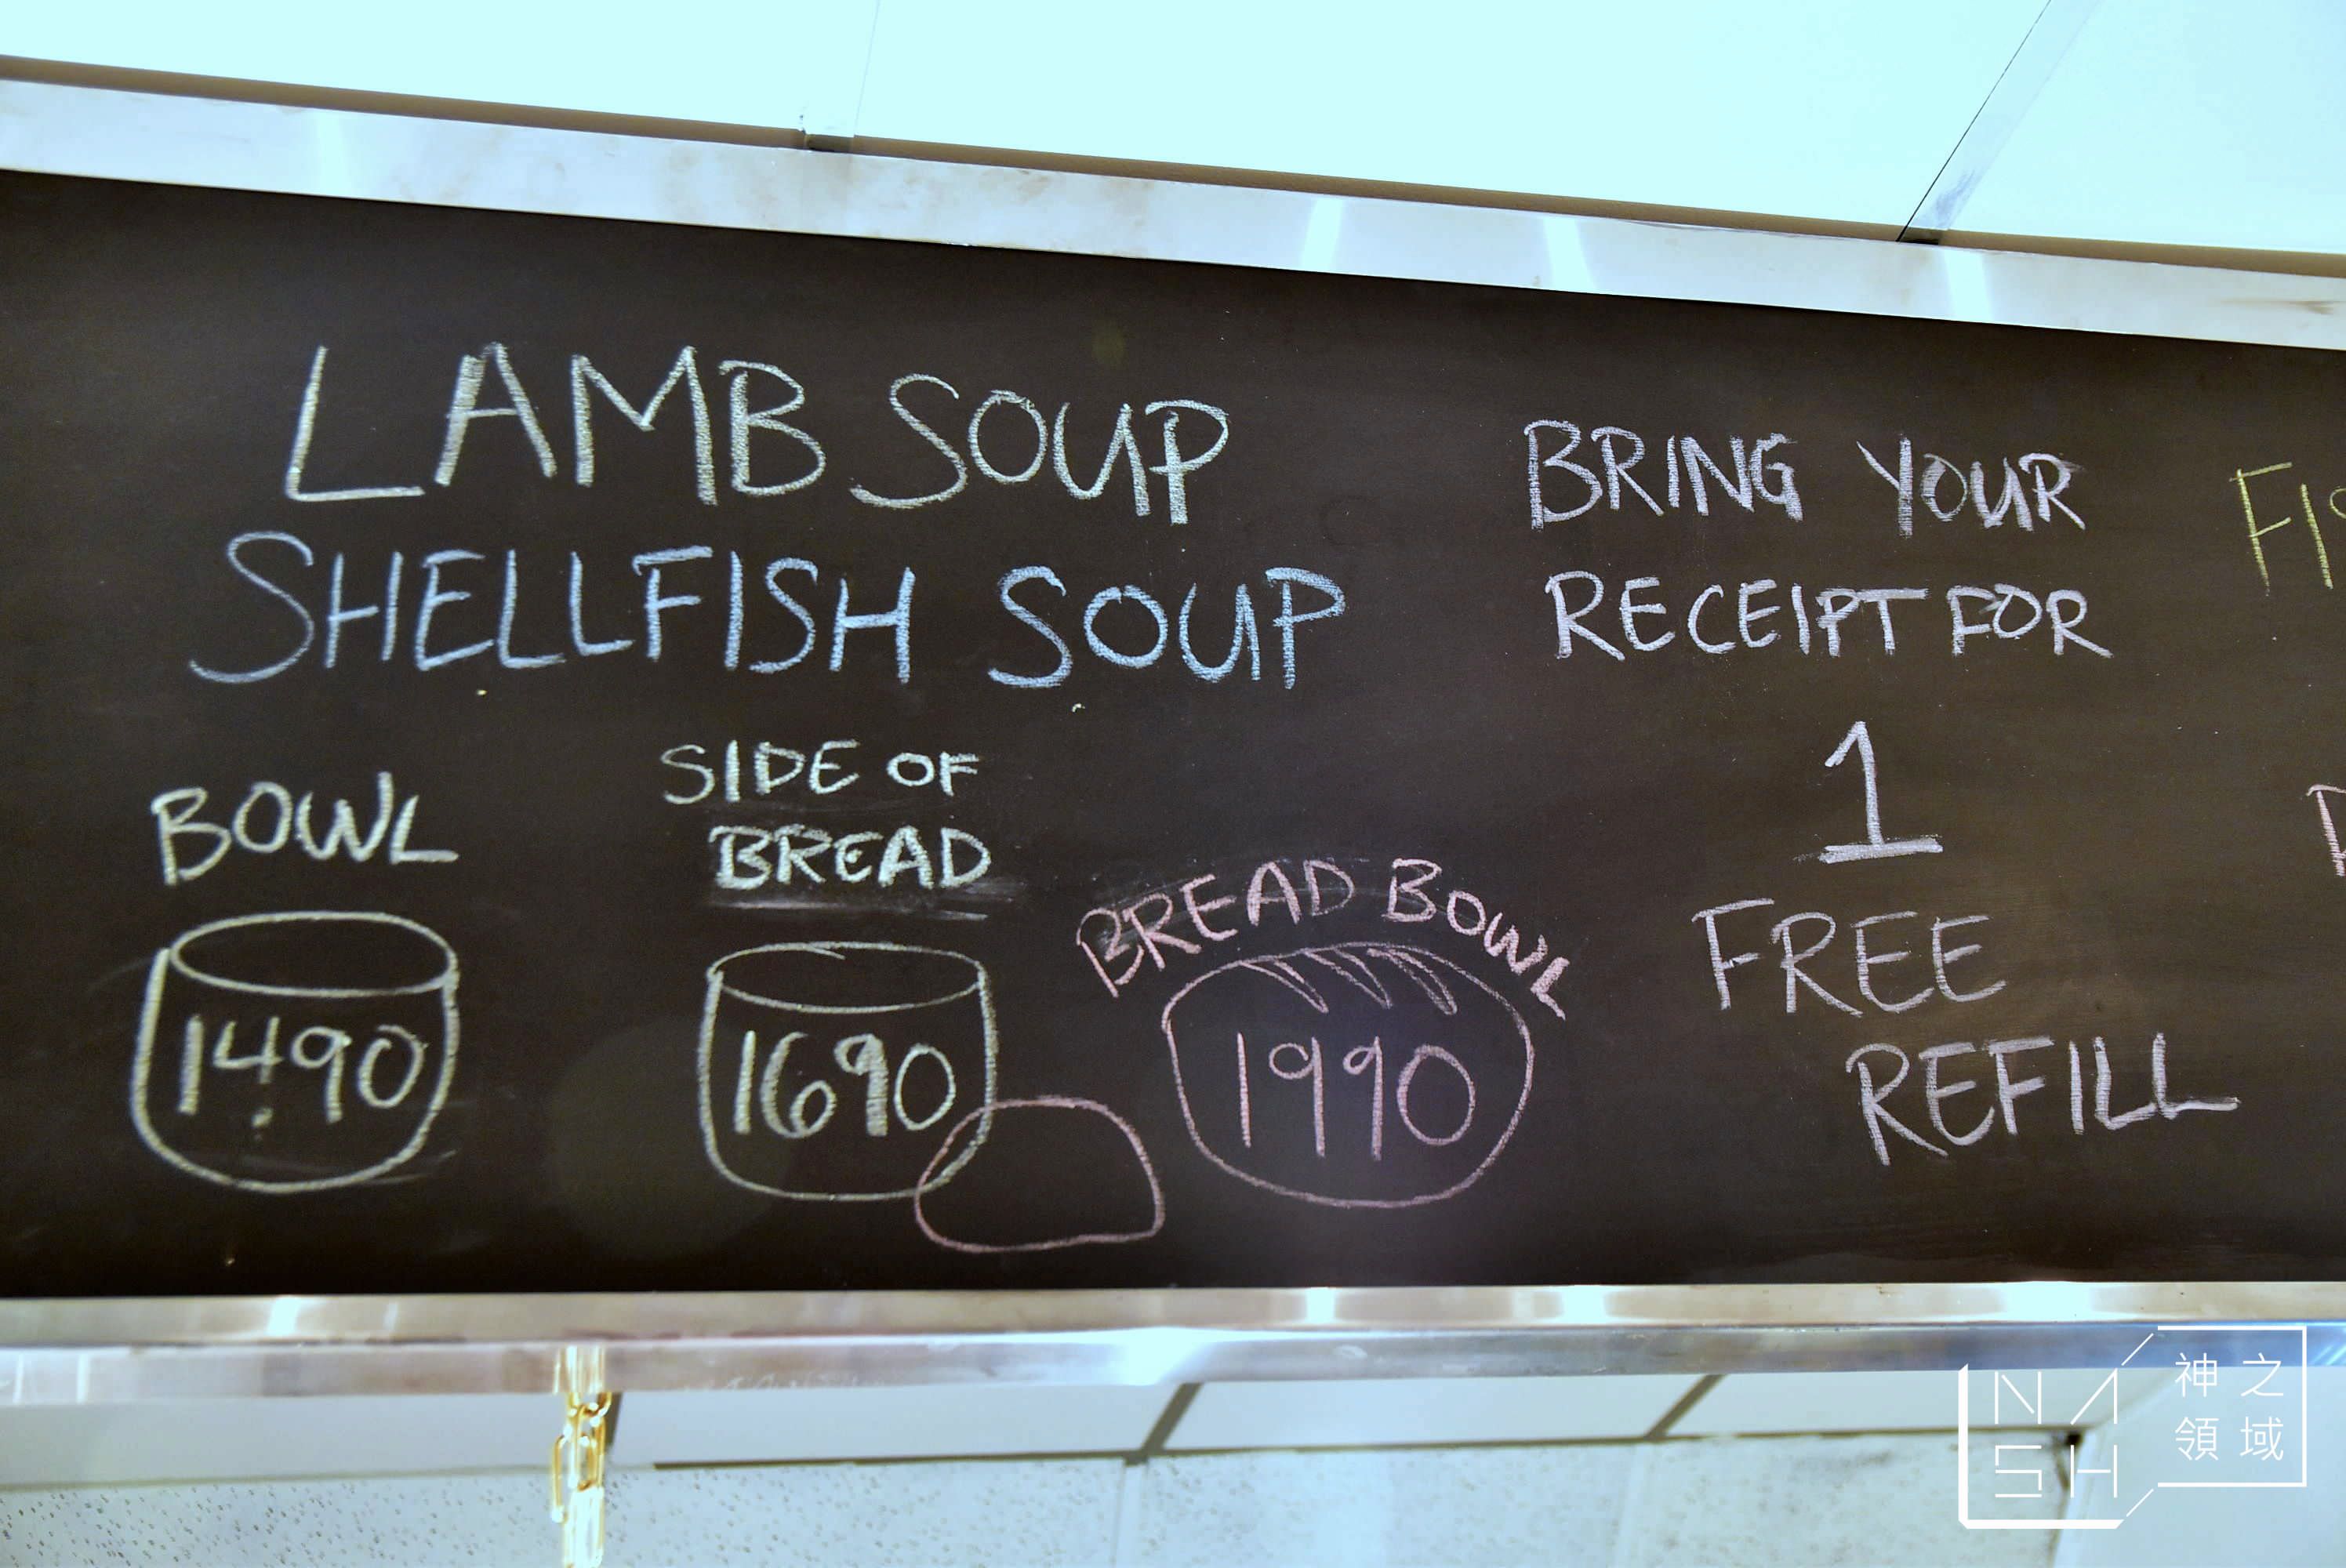 LAMB SOUP
SHELLFISH SOUP
BOWL
1490
SIDE OF
BREAD
1690
BREAD BOWL
1990
BRING YOUR
RECEIPT FOR
1
FREE
REFILL
NASH
神之
領域